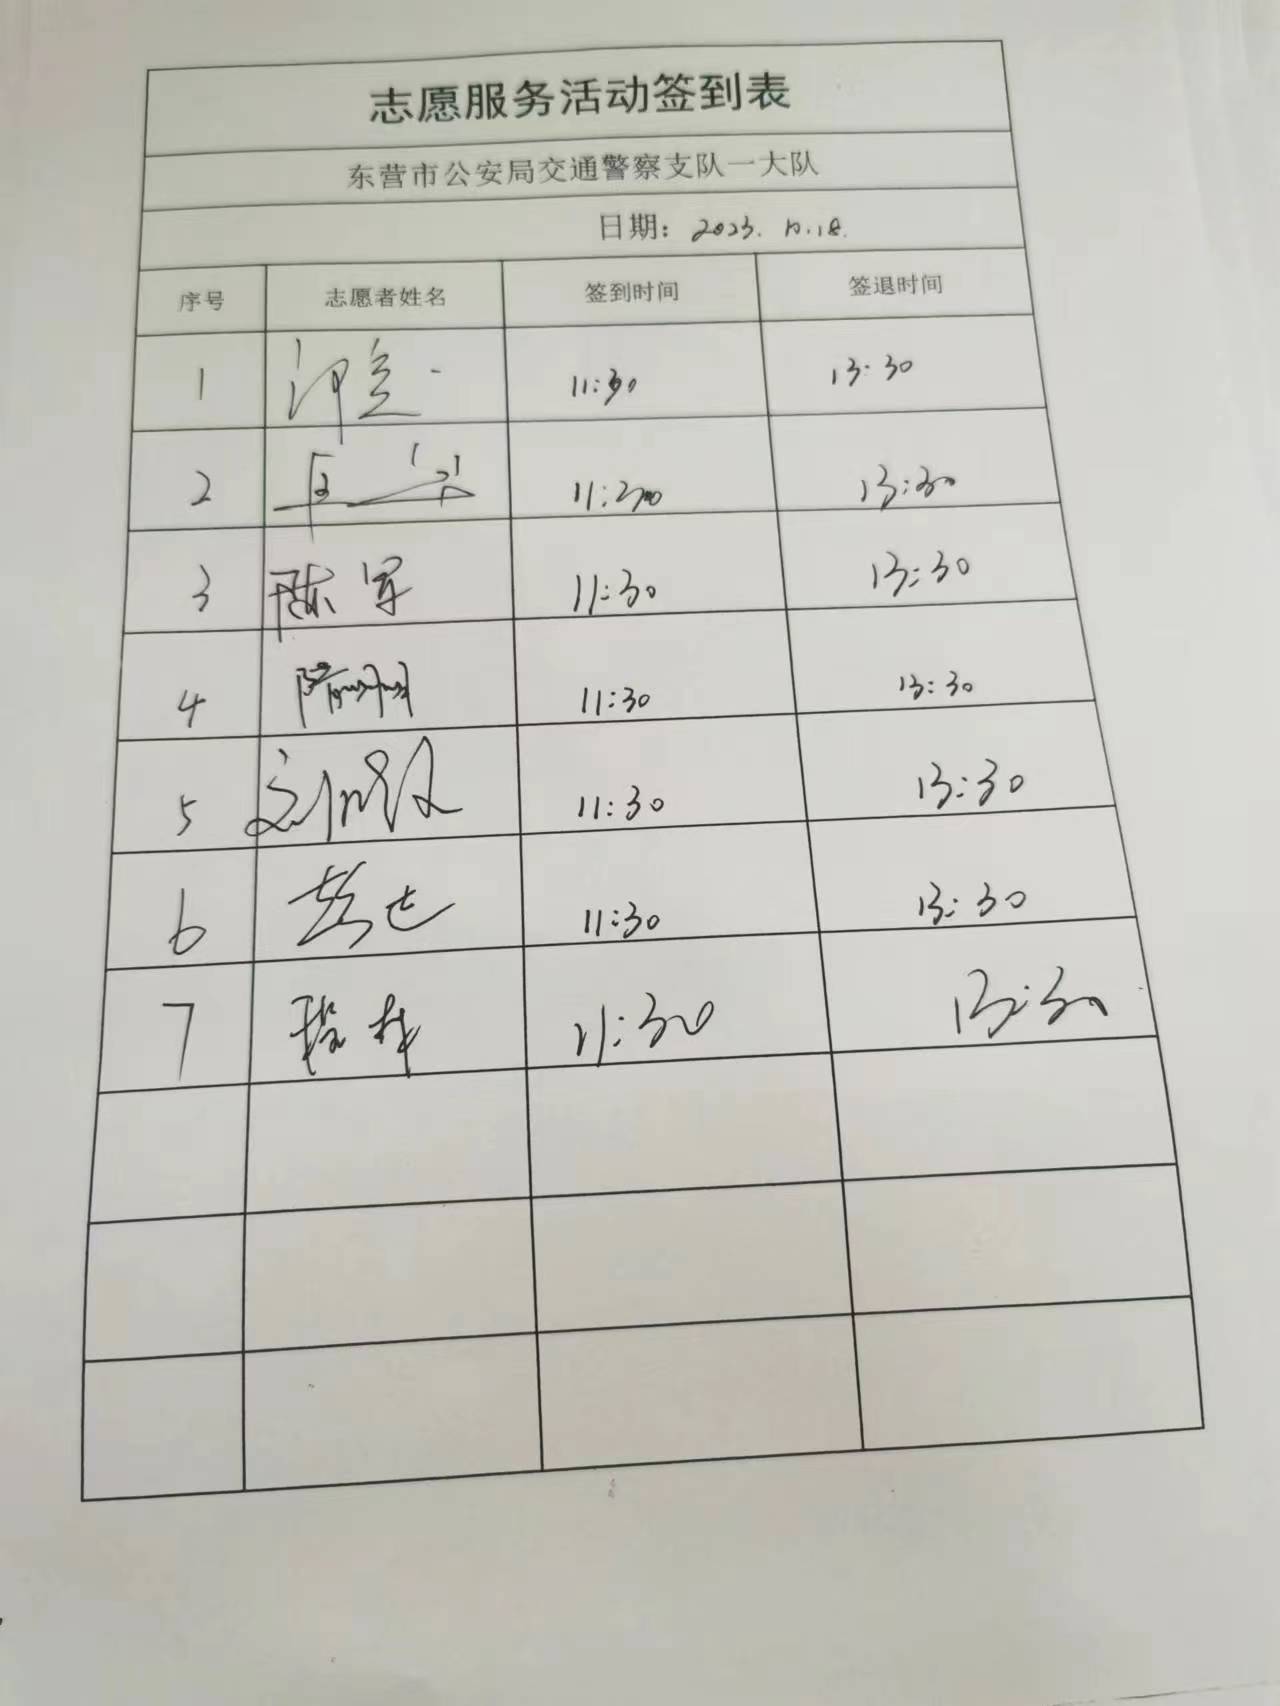 志愿服务活动签到表
东营市公安局交通警察支队一大队
日期: 2023.10.18.
序号 志愿者姓名 签到时间 签退时间
1 11:30 13:30
2 11:30 13:30
3 陈军 11:30 13:30
4 11:30 13:30
5 11:30 13:30
6 11:30 13:30
7 11:30 13:30